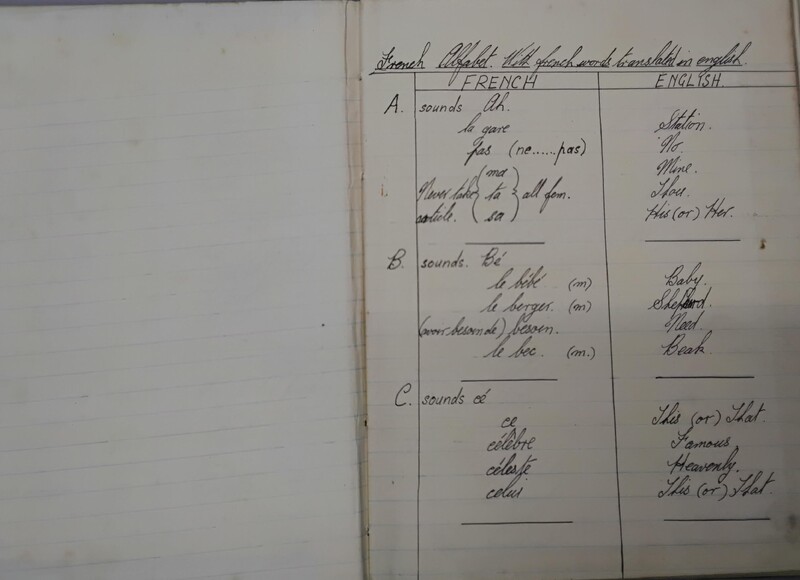 French Alfabet. With french words translated in english.
FRENCH ENGLISH.
A. sounds Ah.
la gare Station.
pas (ne......pas) No.
ma Mine.
Never take ta all fem. Thou.
article. sa His (or) Her.
B. sounds. Bé
le bébé (m) Baby.
le berger. (m) Shepherd.
(avoir besoin de) besoin. Need.
le bec. (m.) Beak.
C. sounds cé
ce This (or) That.
célèbre Famous.
céleste Heavenly.
celui This (or) That.